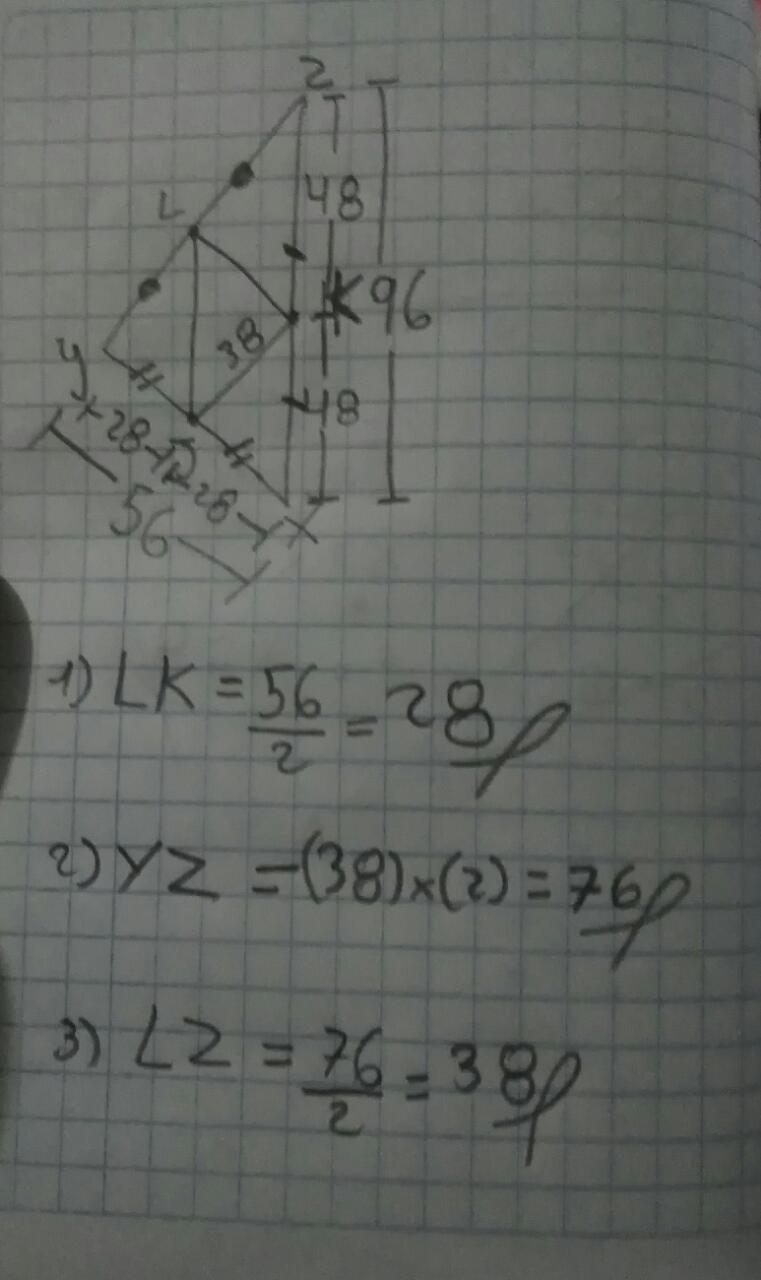 Z
48
L
K 96
38
y
48
28 R 28
56
X
1) LK = 56/2 = 28
2) YZ = (38)x(2) = 76
3) LZ = 76/2 = 38